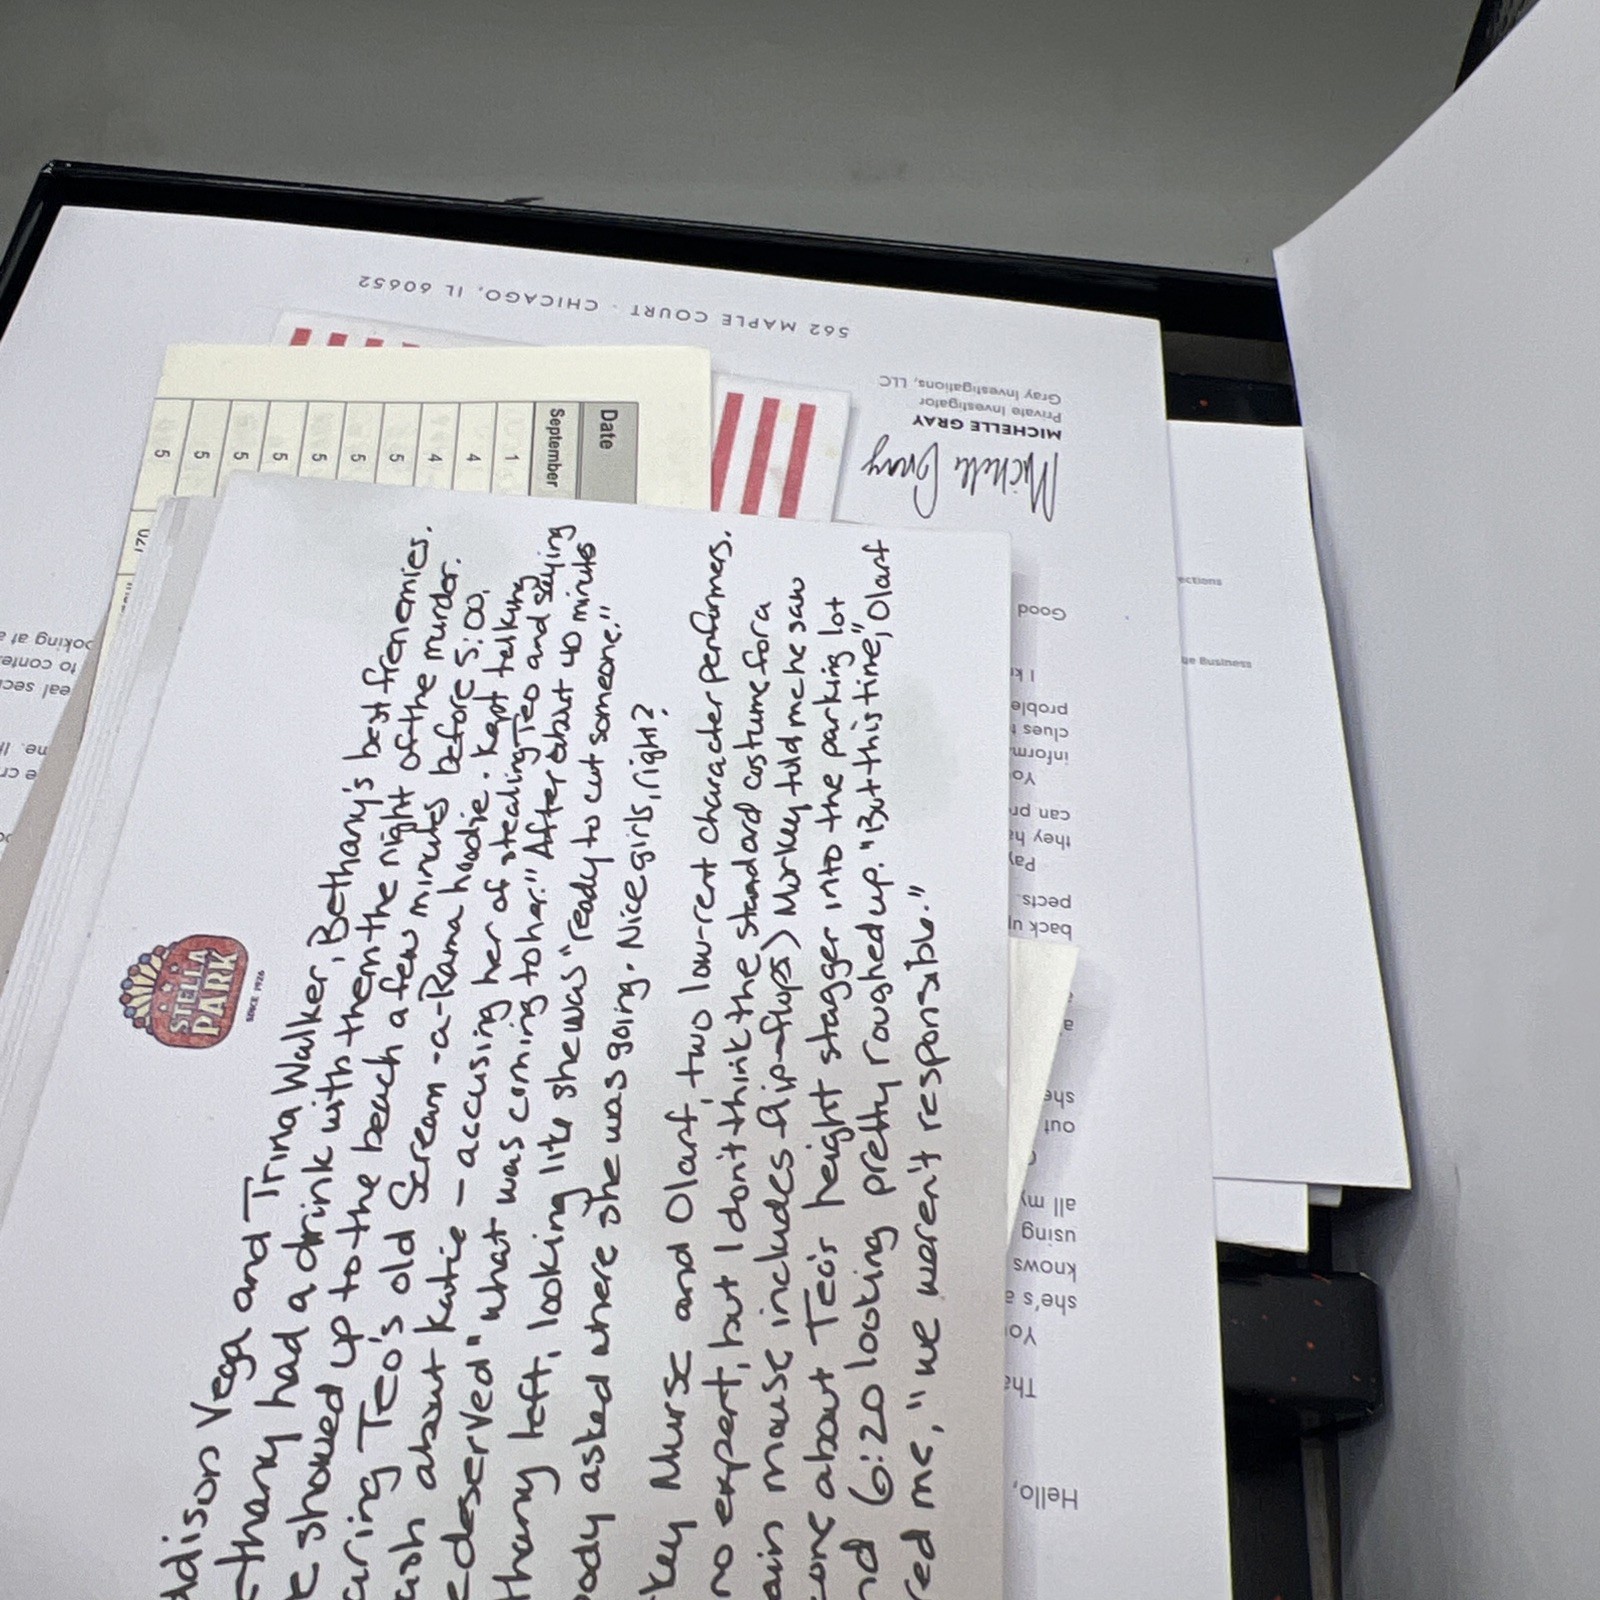 STELLA
PARK
SINCE 1926
ddison Vega and Trina Walker, Bethany's best frenemies.
thany had a drink with them the night of the murder.
e showed up to the beach a few minutes before 5:00,
aring Teo's old Scream-a-Rama hoodie. Kept talking
about Katie - accusing her of stealing Teo and saying
e deserved "what was coming to her." After about 40 minutes
thany left, looking like she was "ready to cut someone."
body asked where she was going. Nice girls, right?
key Murse and Olarf, two low-rent character performers.
no expert, but I don't think the standard costume for a
ain mouse includes flip-flops) Morkey told me he saw
eone about Teo's height stagger into the parking lot
nd 6:20 looking pretty roughed up. "But this time," Olarf
red me, "we weren't responsible."
Date
September
1
4
4
5
5
5
5
5
5
5
562 MAPLE COURT · CHICAGO, IL 60652
Michelle Gray
MICHELLE GRAY
Private Investigator
Gray Investigations, LLC
Hello,
Tha
Yo
she's a
knows
using
all my
out
she
a
back up
pects.
Pay
they ha
can pr
Yo
inform
clues t
problem
I kn
Good
ections
ge Business
ooking at a
to conte
eal sec